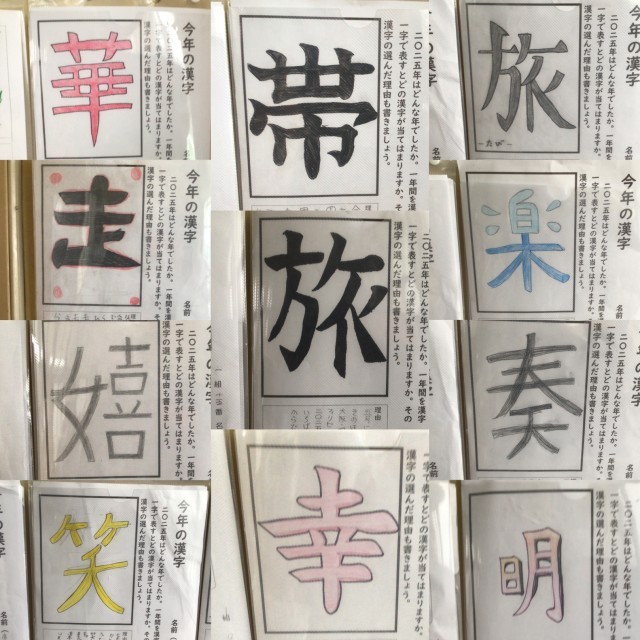 華
今年の漢字
二〇二五年はどんな年でしたか。一年間を漢
一字で表すとどの漢字が当てはまりますか。
漢字の選んだ理由も書きましょう。
帯
二〇二五年はどんな年でしたか。一年間を漢
一字で表すとどの漢字が当てはまりますか。そ
漢字の選んだ理由も書きましょう。
年の漢字
旅
ーたびー
今年の漢字
二〇二五年はどんな年でしたか。一年間を
一字で表すとどの漢字が当てはまりますか。
漢字の選んだ理由も書きましょう。
名前
走
今年の漢字
二〇二五年はどんな年でしたか。一年間を
一字で表すとどの漢字が当てはまりますか。
漢字の選んだ理由も書きましょう。
名前
旅
二〇二五年はどんな年でしたか。一年間を漢字
一字で表すとどの漢字が当てはまりますか。その
漢字の選んだ理由も書きましょう。
理由
一組
番
楽
今年の漢字
二〇二五年はどんな年でしたか。一年間を
一字で表すとどの漢字が当てはまりますか。
漢字の選んだ理由も書きましょう。
名前
嬉
今年の漢字
二〇二五年はどんな年でしたか。一年間を
一字で表すとどの漢字が当てはまりますか。
漢字の選んだ理由も書きましょう。
奏
今年の漢字
二〇二五年はどんな年でしたか。一年間を
一字で表すとどの漢字が当てはまりますか。
漢字の選んだ理由も書きましょう。
名前
の漢字
笑
今年の漢字
二〇二五年はどんな年でしたか。一年間を
一字で表すとどの漢字が当てはまりますか。
漢字の選んだ理由も書きましょう。
名前
幸
一字で表すとどの漢字が当てはまりますか。
漢字の選んだ理由も書きましょう。
明
今年の漢字
二〇二五年はどんな年でしたか。一年間を
一字で表すとどの漢字が当てはまりますか。
漢字の選んだ理由も書きましょう。
名前